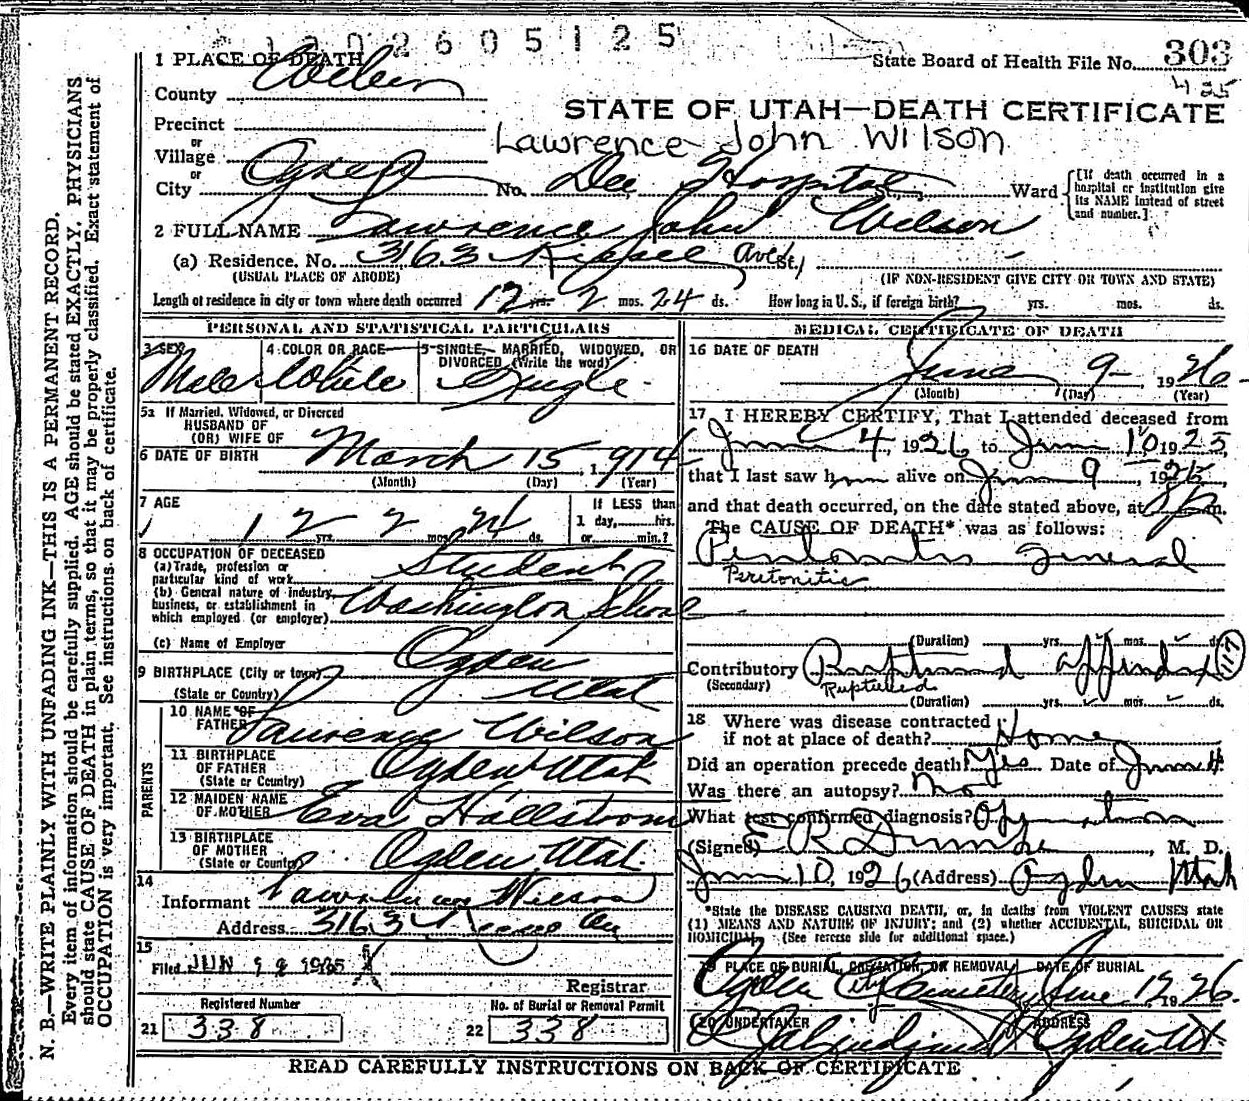 1202605125
1 PLACE OF DEATH
State Board of Health File No. 303
425
County Weber
STATE OF UTAH—DEATH CERTIFICATE
Precinct
Lawrence John Wilson
or
Village
or
City Ogden No. Dee Hospital Ward
[If death occurred in a hospital or institution give its NAME instead of street and number.]
2 FULL NAME Lawrence John Wilson
(a) Residence. No. 3163 Ave St.
(USUAL PLACE OF ABODE) (IF NON-RESIDENT GIVE CITY OR TOWN AND STATE)
Length of residence in city or town where death occurred 12 yrs. 2 mos. 24 ds. How long in U. S., if foreign birth? yrs. mos. ds.
PERSONAL AND STATISTICAL PARTICULARS
3 SEX 4 COLOR OR RACE 5 SINGLE, MARRIED, WIDOWED, OR DIVORCED (Write the word)
Male White Single
5a If Married, Widowed, or Divorced
HUSBAND OF
(OR) WIFE OF
6 DATE OF BIRTH March 15, 1914
(Month) (Day) (Year)
7 AGE If LESS than
12 yrs. 2 mos. 24 ds. 1 day, hrs. or min.?
8 OCCUPATION OF DECEASED
(a) Trade, profession or particular kind of work Student
(b) General nature of industry, business, or establishment in which employed (or employer) Washington School
(c) Name of Employer
9 BIRTHPLACE (City or town) Ogden
(State or Country) Utah
PARENTS
10 NAME OF FATHER Lawrence Wilson
11 BIRTHPLACE OF FATHER (State or Country) Ogden Utah
12 MAIDEN NAME OF MOTHER Eva Hallstrom
13 BIRTHPLACE OF MOTHER (State or Country) Ogden, Utah.
14
Informant Lawrence Wilson
Address 3163
15
Filed JUN
Registrar
Registered Number No. of Burial or Removal Permit
21 338 22 338
MEDICAL CERTIFICATE OF DEATH
16 DATE OF DEATH
June 9 1926
(Month) (Day) (Year)
17 I HEREBY CERTIFY, That I attended deceased from
June 4, 1926 to June 10 1925,
that I last saw him alive on June 9, 1926,
and that death occurred, on the date stated above, at 8 P m.
The CAUSE OF DEATH* was as follows:
Peritonitis general
Peritonitis
(Duration) yrs. mos. ds.
Contributory Ruptured appendix 117
(Secondary) Ruptured
(Duration) yrs. mos. ds.
18 Where was disease contracted
if not at place of death? Home
Did an operation precede death? Yes Date of June 4
Was there an autopsy? No
What test confirmed diagnosis? Operation
(Signed) E R Dumke, M. D.
June 10, 1926 (Address) Ogden Utah
*State the DISEASE CAUSING DEATH, or, in deaths from VIOLENT CAUSES state
(1) MEANS AND NATURE OF INJURY; and (2) whether ACCIDENTAL, SUICIDAL OR
HOMICIDAL. (See reverse side for additional space.)
19 PLACE OF BURIAL, CREMATION, OR REMOVAL DATE OF BURIAL
Ogden City Cemetery June 12 1926.
20 UNDERTAKER ADDRESS
Ogden Ut
READ CAREFULLY INSTRUCTIONS ON BACK OF CERTIFICATE
N. B.—WRITE PLAINLY WITH UNFADING INK—THIS IS A PERMANENT RECORD.
Every item of information should be carefully supplied. AGE should be stated EXACTLY. PHYSICIANS
should state CAUSE OF DEATH in plain terms, so that it may be properly classified. Exact statement of
OCCUPATION is very important. See instructions on back of certificate.